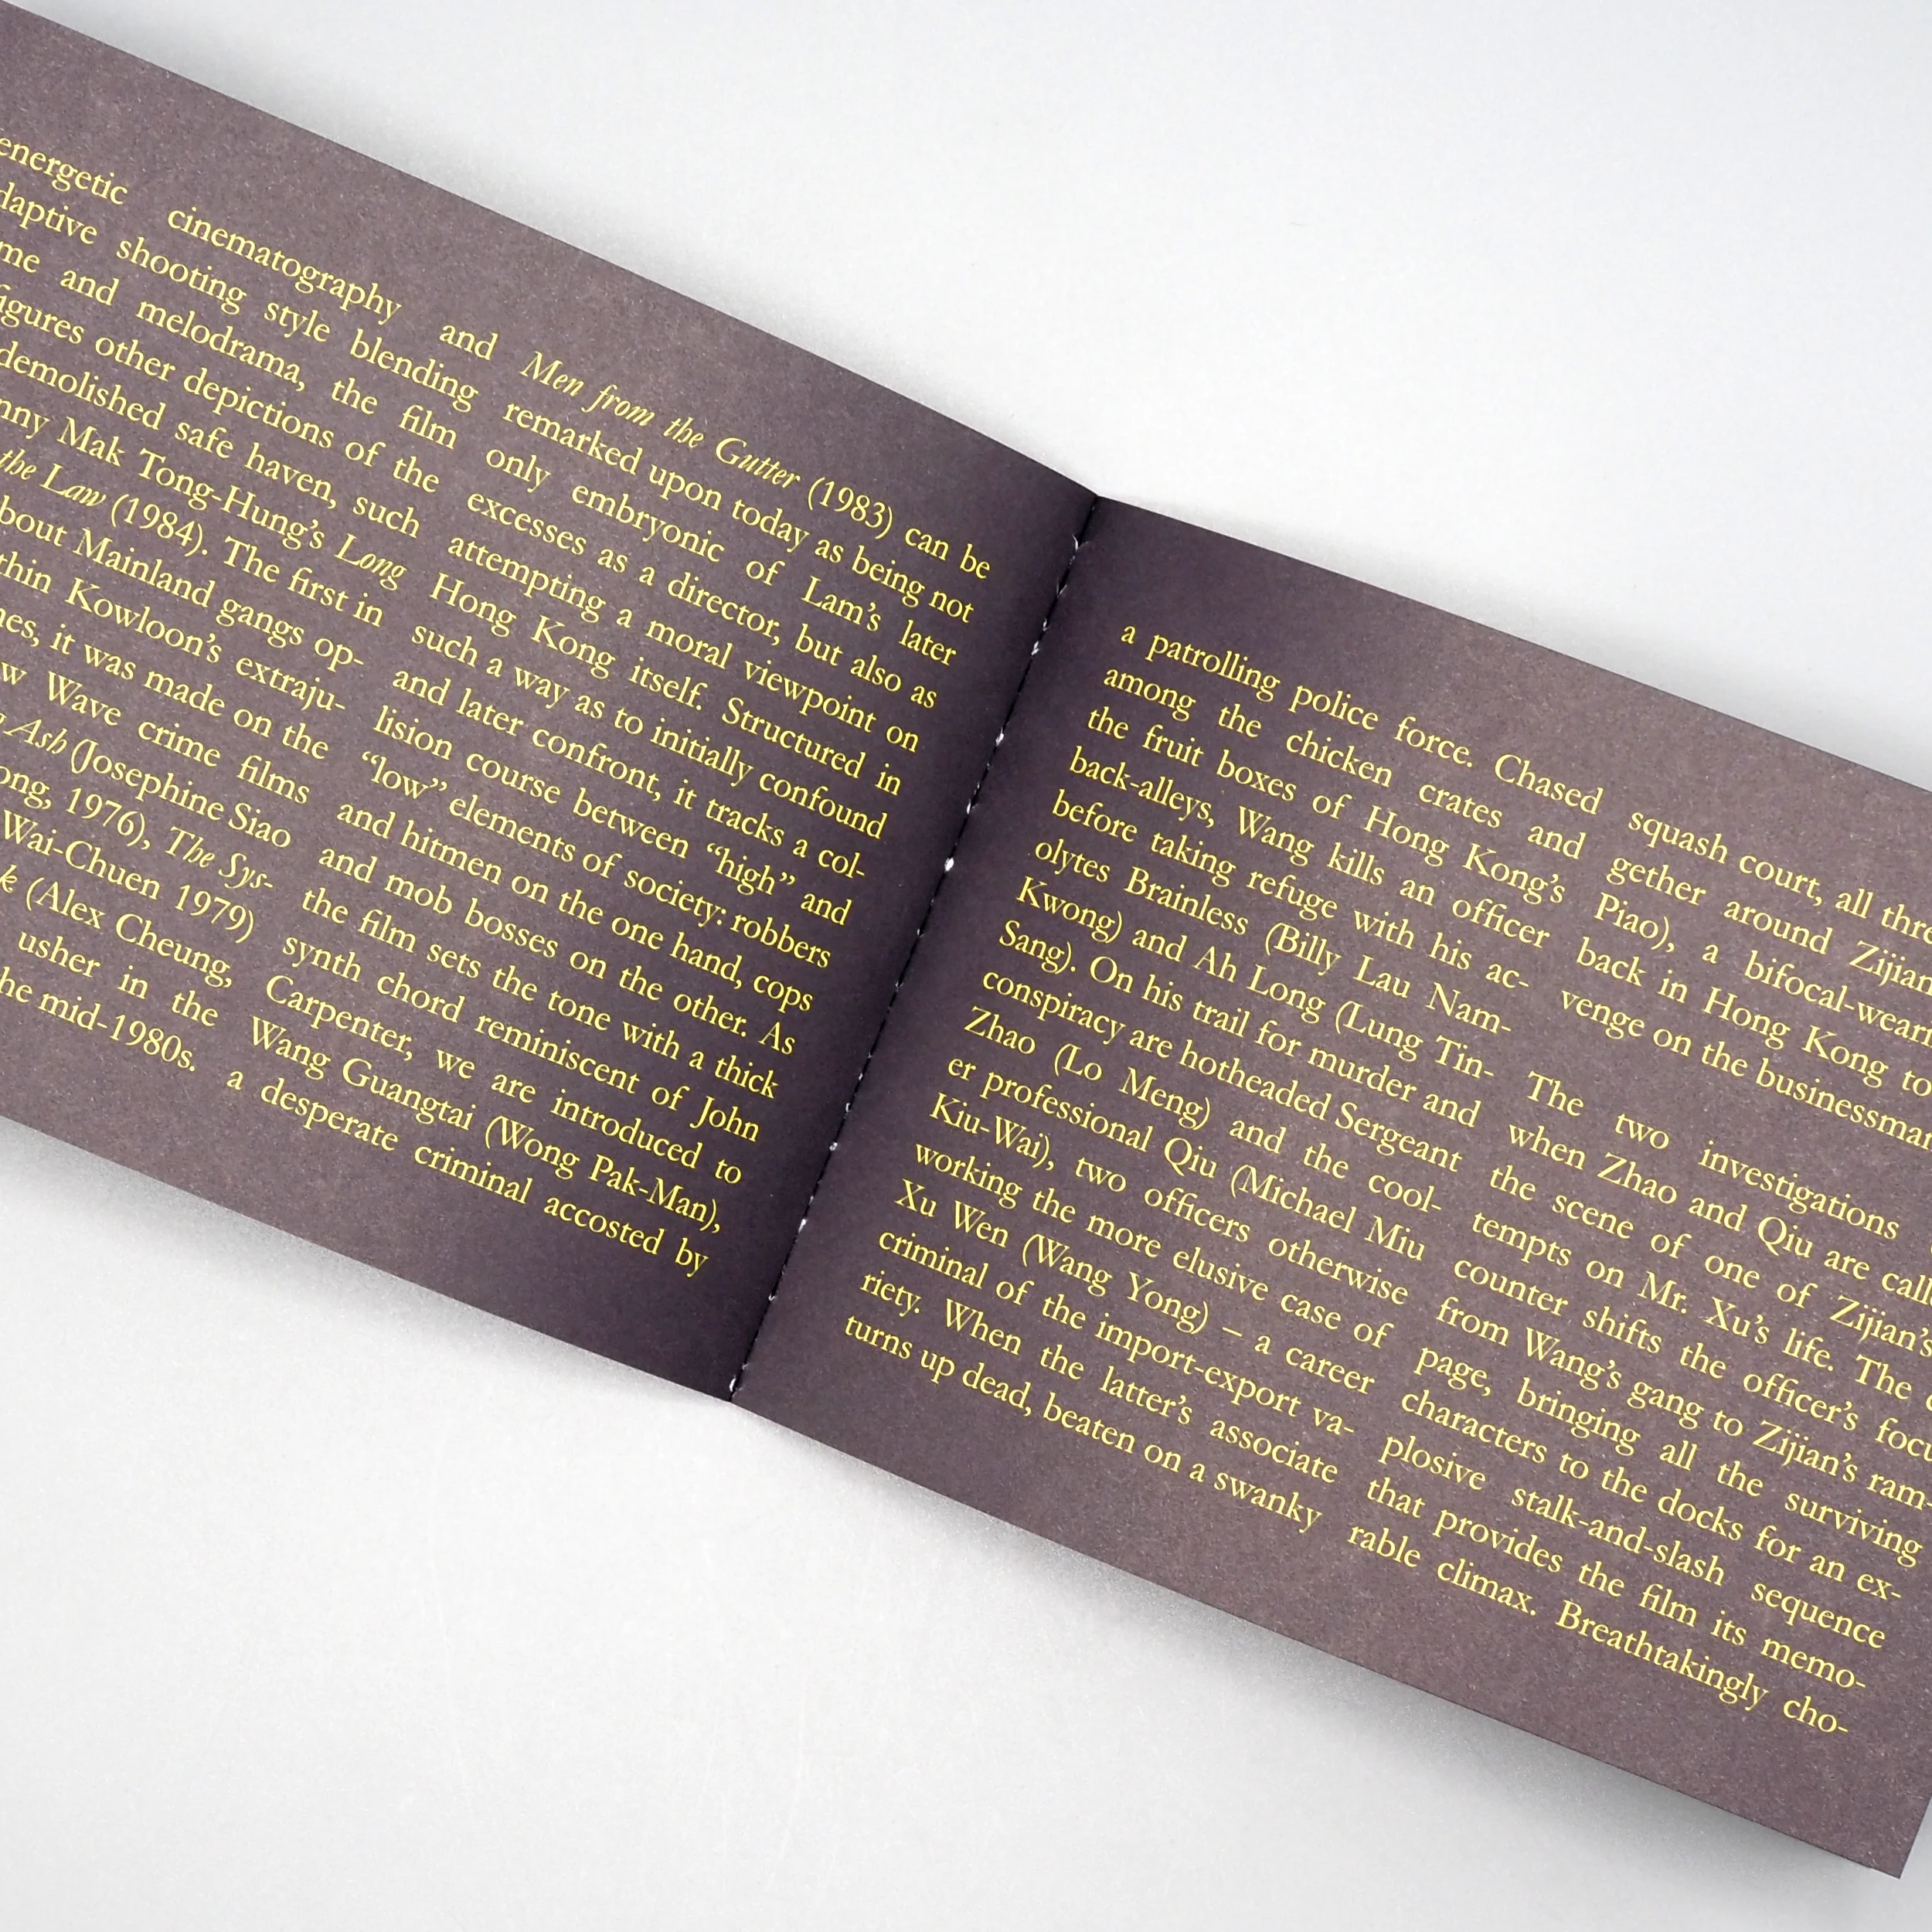 energetic cinematography and
daptive shooting style blending
me and melodrama, the film
figures other depictions of the
demolished safe haven, such
nny Mak Tong-Hung's Long
the Law (1984). The first in
bout Mainland gangs op-
thin Kowloon's extraju-
nes, it was made on the
w Wave crime films
Ash (Josephine Siao
ong, 1976), The Sys-
Wai-Chuen 1979)
k (Alex Cheung,
usher in the
he mid-1980s.
Men from the Gutter (1983) can be
remarked upon today as being not
only embryonic of Lam's later
excesses as a director, but also as
attempting a moral viewpoint on
Hong Kong itself. Structured in
such a way as to initially confound
and later confront, it tracks a col-
lision course between “high” and
“low” elements of society: robbers
and hitmen on the one hand, cops
and mob bosses on the other. As
the film sets the tone with a thick
synth chord reminiscent of John
Carpenter, we are introduced to
Wang Guangtai (Wong Pak-Man),
a desperate criminal accosted by
a patrolling police force. Chased
among the chicken crates and
the fruit boxes of Hong Kong's
back-alleys, Wang kills an officer
before taking refuge with his ac-
olytes Brainless (Billy Lau Nam-
Kwong) and Ah Long (Lung Tin-
Sang). On his trail for murder and
conspiracy are hotheaded Sergeant
Zhao (Lo Meng) and the cool-
er professional Qiu (Michael Miu
Kiu-Wai), two officers otherwise
working the more elusive case of
Xu Wen (Wang Yong) – a career
criminal of the import-export va-
riety. When the latter's associate
turns up dead, beaten on a swanky
squash court, all thre
gether around Zijian
Piao), a bifocal-wear
back in Hong Kong to
venge on the businessma
The two investigations
when Zhao and Qiu are call
the scene of one of Zijian's
tempts on Mr. Xu's life. The
counter shifts the officer's focu
from Wang's gang to Zijian's ram-
page, bringing all the surviving
characters to the docks for an ex-
plosive stalk-and-slash sequence
that provides the film its memo-
rable climax. Breathtakingly cho-